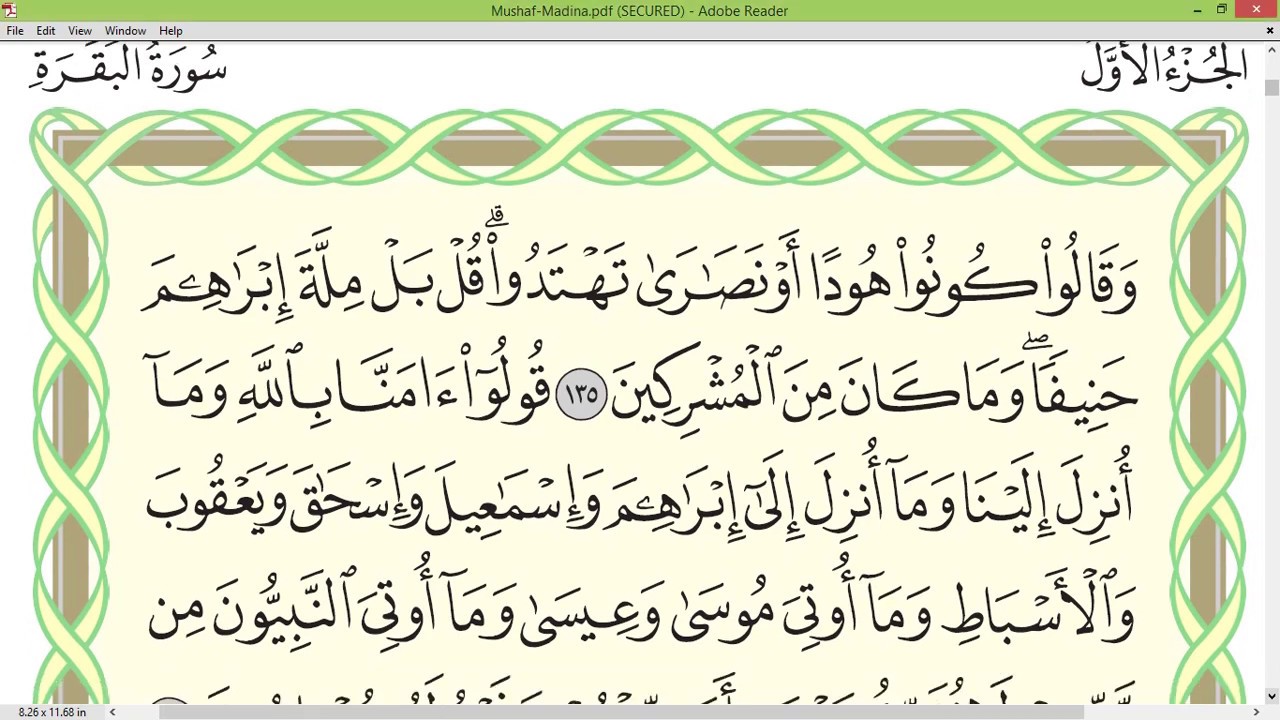 Mushaf-Madina.pdf (SECURED) - Adobe Reader
File Edit View Window Help
الجُزْءُ الأَوَّلُ سُورَةُ البَقَرَةِ
وَقَالُوا۟ كُونُوا۟ هُودًا أَوْ نَصَـٰرَىٰ تَهْتَدُوا۟ ۗ قُلْ بَلْ مِلَّةَ إِبْرَٰهِـۧمَ
حَنِيفًا ۖ وَمَا كَانَ مِنَ ٱلْمُشْرِكِينَ ١٣٥ قُولُوٓا۟ ءَامَنَّا بِٱللَّهِ وَمَآ
أُنزِلَ إِلَيْنَا وَمَآ أُنزِلَ إِلَىٰٓ إِبْرَٰهِـۧمَ وَإِسْمَـٰعِيلَ وَإِسْحَـٰقَ وَيَعْقُوبَ
وَٱلْأَسْبَاطِ وَمَآ أُوتِىَ مُوسَىٰ وَعِيسَىٰ وَمَآ أُوتِىَ ٱلنَّبِيُّونَ مِن
8.26 x 11.68 in